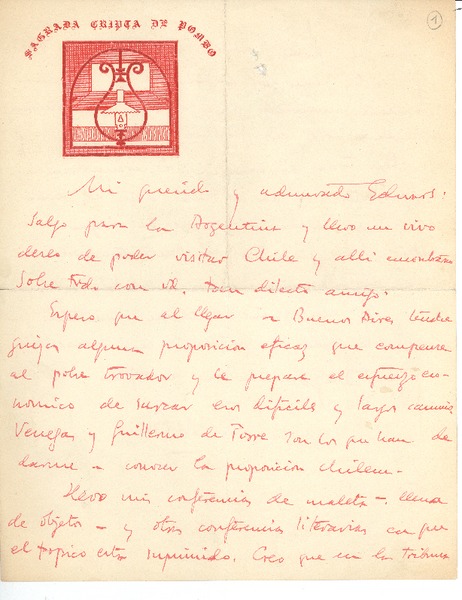 SAGRADA CRIPTA DE POMBO
1
Mi querido y admirado Edwards:
Salgo para la Argentina y llevo un vivo
deseo de poder visitar Chile y alli encontrarme
sobre todo con vd. tan dilecto amigo.
Espero que al llegar a Buenos Aires tendre
alguna proposición eficaz que compense
al pobre trovador y le prepare el esfuerzo eco-
nomico de surcar esos dificiles y largos caminos
Venegas y Guillermo de Torre son los que han de
darme a conocer la proposición chilena.
Llevo mis conferencias de maleta — llena
de objetos — y otras conferencias literarias en que
el topico esta suprimido. Creo que en la tribuna